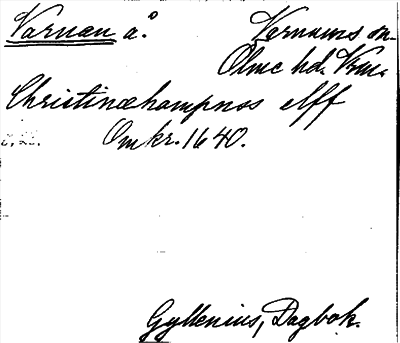 Varnan å. Varnums sn.
Ölme hd. Vrml.
Christinæhampnos elff
Omkr. 1640.
Gyllenius, Dagbok.